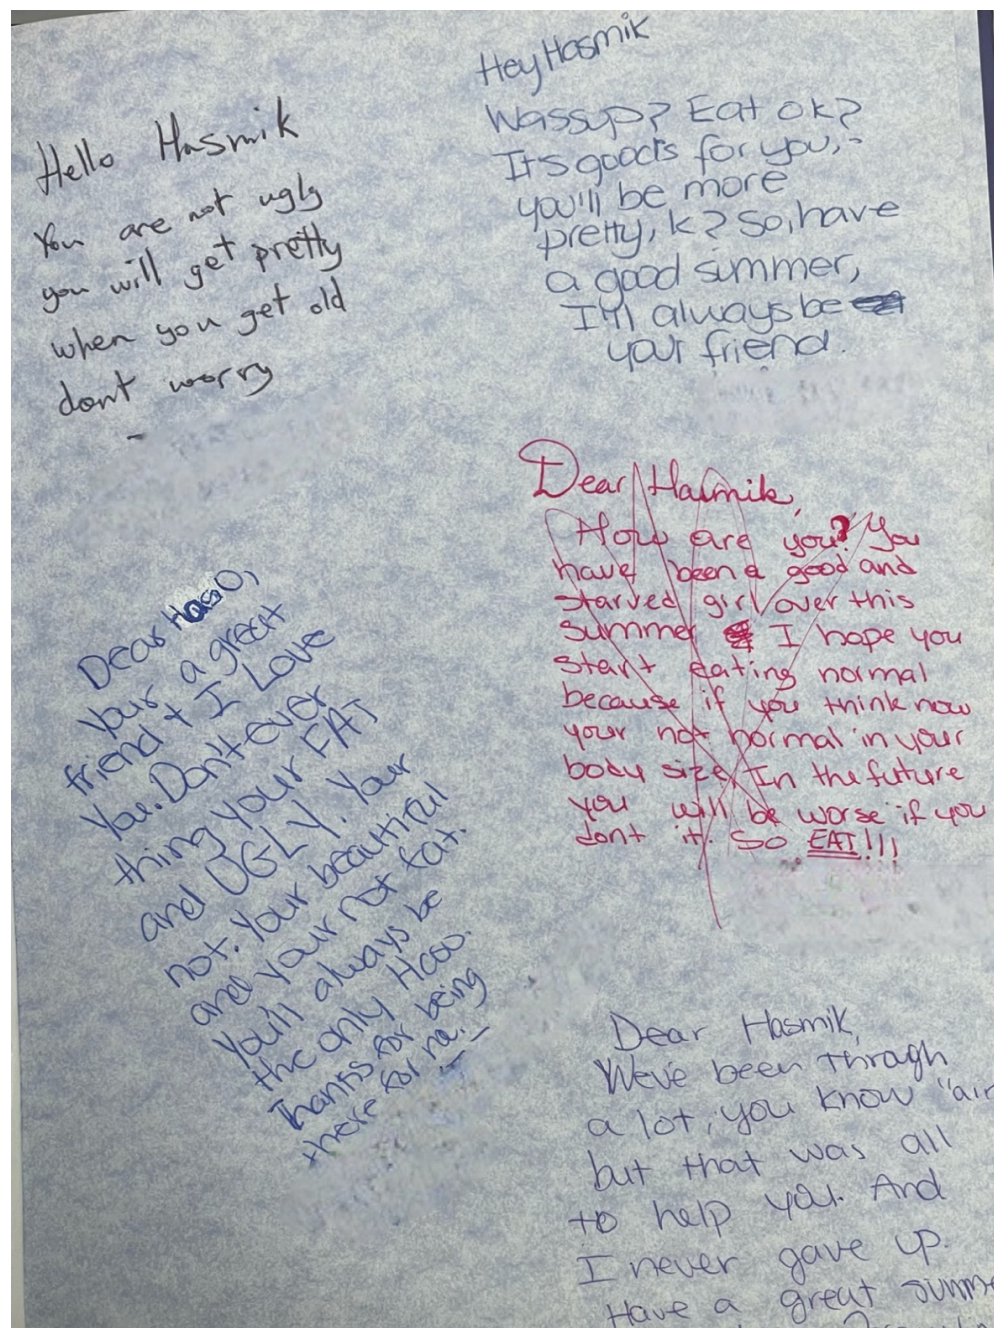 Hello Hasmik
You are not ugly
you will get pretty
when you get old
dont worry
Hey Hasmik
Wassup? Eat ok?
It's goods for you,
you'll be more
pretty, k? So, have
a good summer,
I'll always be
your friend.
Dear Hasmik,
How are you? You
have been a good and
starved girl over this
summer I hope you
start eating normal
because if you think now
your not normal in your
body size, In the future
you will be worse if you
dont it. So EAT!!!
Dear Haso,
Your a great
friend + I Love
You. Don't ever
thing your FAT
and UGLY. Your
not. Your beautiful
and your not fat.
You'll always be
the only Haso.
Thanks for being
there for me.
Dear Hasmik,
We've been through
a lot, you know "air
but that was all
to help you. And
I never gave up.
Have a great summe